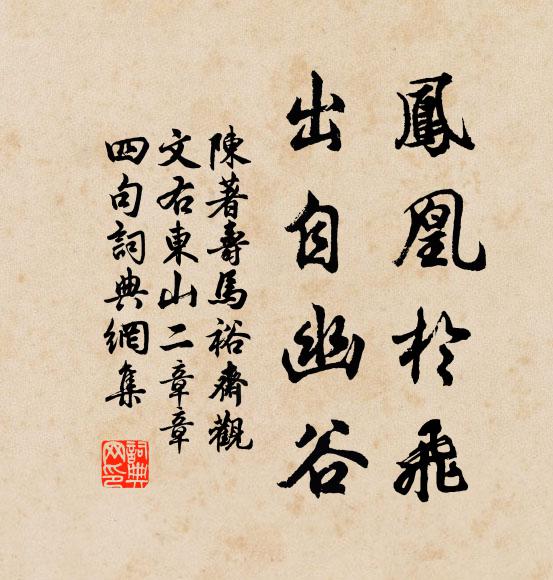 鳳凰於飛
出自幽谷
陳著壽馬裕齋觀
文右東山二章章
四句詞典網集
詞典
网印